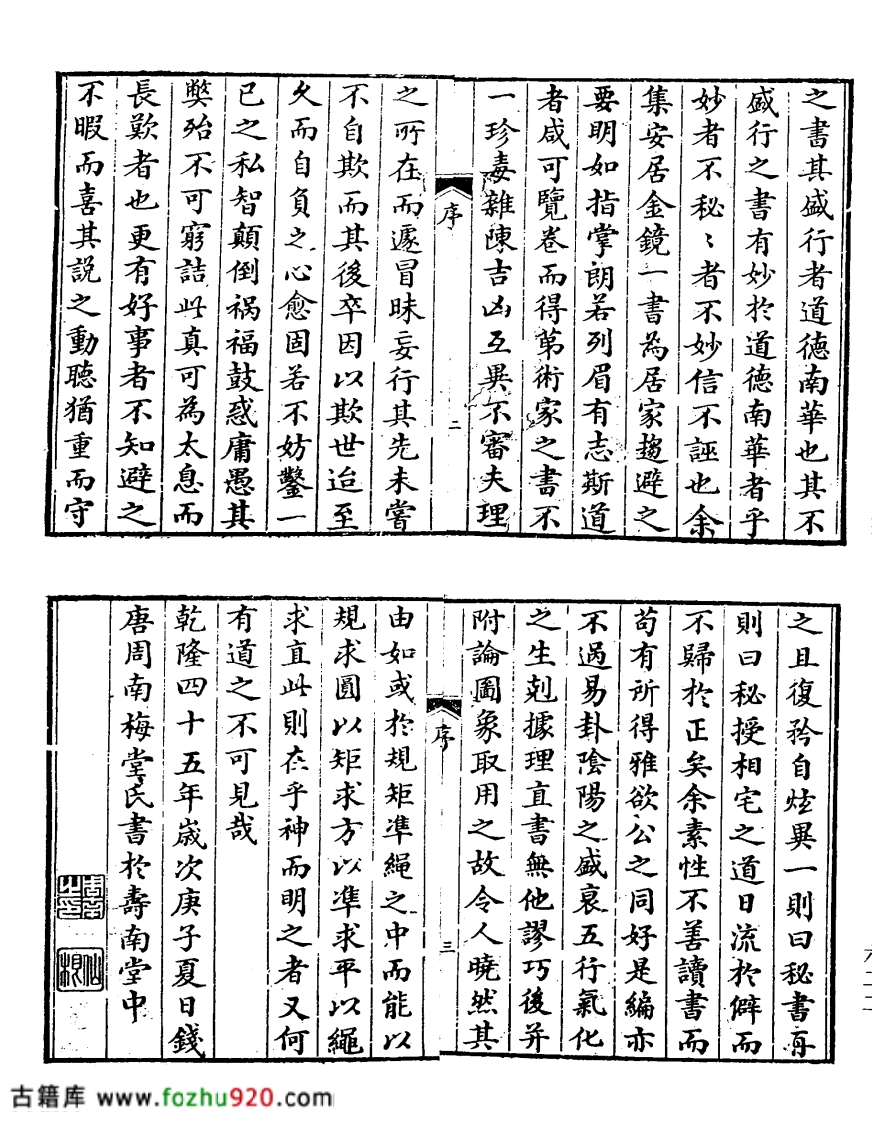 之書其盛行者道德南華也其不
盛行之書有妙於道德南華者乎
妙者不秘〻者不妙信不誣也余
集安居金鏡一書為居家趨避之
要明如指掌朗若列眉有志斯道
者咸可覽卷而得苐術家之書不
一珍毒雜陳吉凶互異不審夫理
序
二
之所在而遽冒昧妄行其先未嘗
不自欺而其後卒因以欺世迨至
久而自負之心愈固若不妨鑿一
已之私智顛倒禍福鼓惑庸愚其
弊殆不可窮詰此真可為太息而
長歎者也更有好事者不知避之
不暇而喜其說之動聽猶重而守
之且復矜自炫異一則曰秘書再
則曰秘授相宅之道日流於僻而
不歸於正矣余素性不善讀書而
苟有所得雅欲公之同好是編亦
不過易卦陰陽之盛衰五行氣化
之生剋據理直書無他謬巧後并
附論圖象取用之故令人曉然其
序
三
由如或於規矩準繩之中而能以
規求圓以矩求方以準求平以繩
求直此則存乎神而明之者又何
有道之不可見哉
乾隆四十五年歲次庚子夏日錢
唐周南梅堂氏書於壽南堂中
六二二
古籍库 www.fozhu920.com